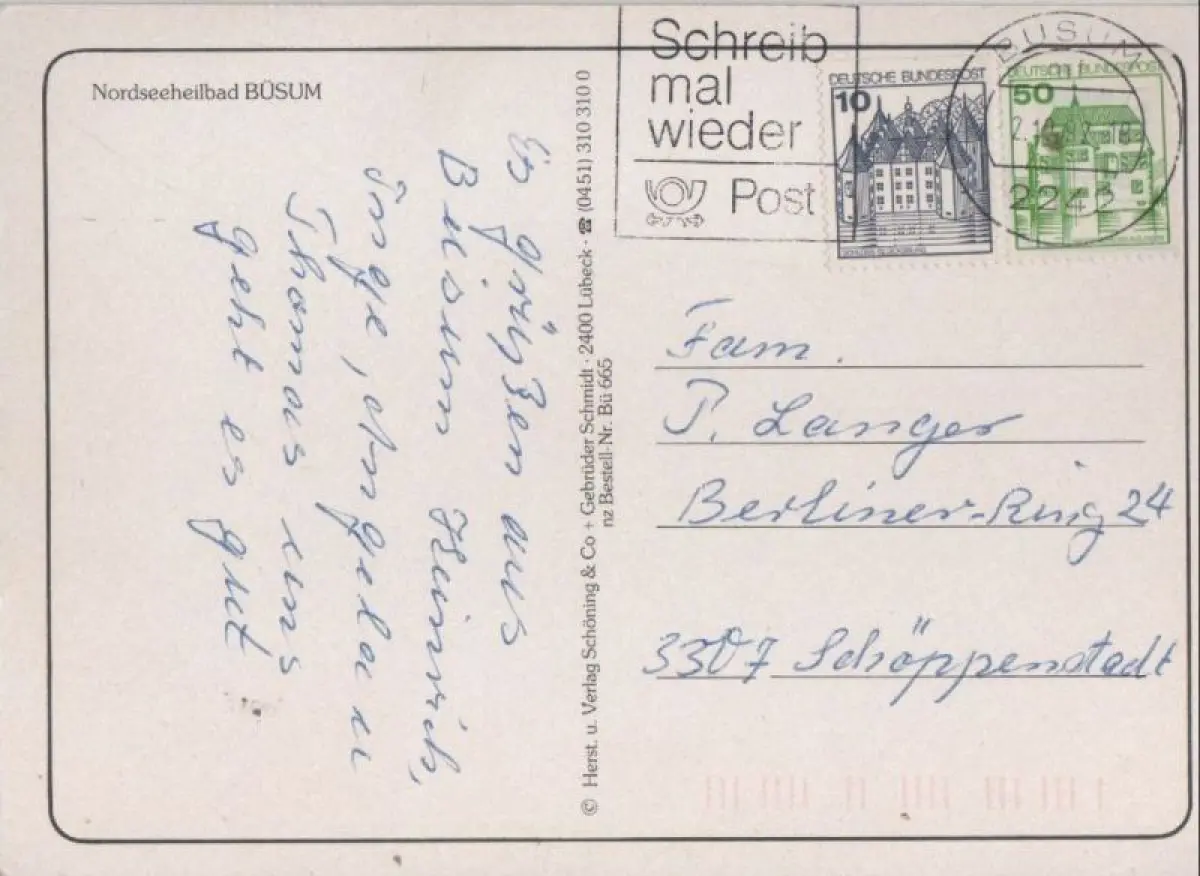 Nordseeheilbad BÜSUM
Es grüßen aus
Büsum Heinrich,
Inge, Angela u
Thomas uns
geht es gut
© Herst. u. Verlag Schöning & Co + Gebrüder Schmidt · 2400 Lübeck · ☎ (0451) 310 310 0
nz Bestell-Nr. Bü 665
Schreib
mal
wieder
Post
DEUTSCHE BUNDESPOST
10
SCHLOSS GLÜCKSBURG
DEUTSCHE BUNDESPOST
50
BÜSUM
2242
Fam.
P. Langer
Berliner-Ring 24
3307 Schöppenstadt